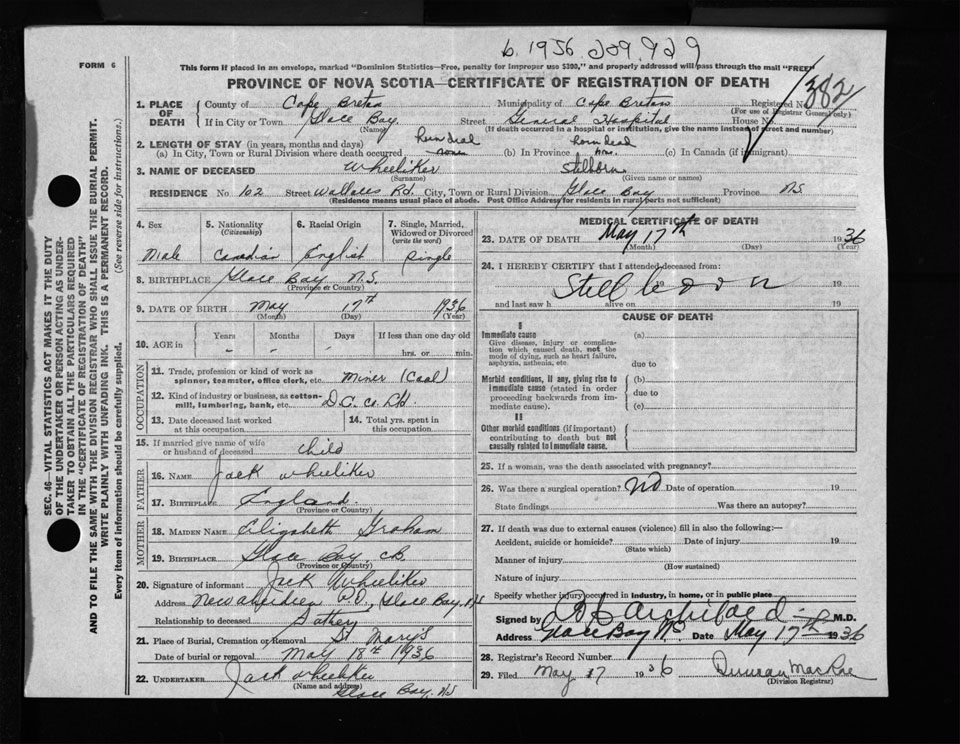 b. 1936 209929
FORM 6
This form if placed in an envelope, marked "Dominion Statistics—Free, penalty for improper use $300," and properly addressed will pass through the mail "FREE"
PROVINCE OF NOVA SCOTIA—CERTIFICATE OF REGISTRATION OF DEATH
1. PLACE OF DEATH County of Cape Breton Municipality of Cape Breton Registered No. 382
(For use of Registrar General only)
If in City or Town Glace Bay Street General Hospital House No.
(Name) (If death occurred in a hospital or institution, give the name instead of street and number)
2. LENGTH OF STAY (in years, months and days) Born dead Born dead
(a) In City, Town or Rural Division where death occurred none (b) In Province (c) In Canada (if immigrant)
3. NAME OF DECEASED Wheeliker Stillborn
(Surname) (Given name or names)
RESIDENCE No. 102 Street Wallace Rd. City, Town or Rural Division Glace Bay Province NS
(Residence means usual place of abode. Post Office Address for residents in rural parts not sufficient)
4. Sex 5. Nationality (Citizenship) 6. Racial Origin 7. Single, Married, Widowed or Divorced (write the word)
Male Canadian English Single
8. BIRTHPLACE Glace Bay N.S.
(Province or Country)
9. DATE OF BIRTH May 17th 1936
(Month) (Day) (Year)
10. AGE in Years Months Days If less than one day old
hrs. or min.
OCCUPATION
11. Trade, profession or kind of work as spinner, teamster, office clerk, etc. Miner (Coal)
12. Kind of industry or business, as cotton-mill, lumbering, bank, etc. D.C. Co. Ltd
13. Date deceased last worked at this occupation 14. Total yrs. spent in this occupation
15. If married give name of wife or husband of deceased child
FATHER
16. NAME Jack Wheeliker
17. BIRTHPLACE England
(Province or Country)
MOTHER
18. MAIDEN NAME Elizabeth Graham
19. BIRTHPLACE Glace Bay, CB
(Province or Country)
20. Signature of informant Jack Wheeliker
Address New Aberdeen P.O., Glace Bay, NS
Relationship to deceased Father
21. Place of Burial, Cremation or Removal St Mary's
Date of burial or removal May 18th 1936
22. UNDERTAKER Jack Wheeliker
(Name and address) Glace Bay, NS
MEDICAL CERTIFICATE OF DEATH
23. DATE OF DEATH May 17th 1936
(Month) (Day) (Year)
24. I HEREBY CERTIFY that I attended deceased from:
Still born 19 19
and last saw h alive on 19
CAUSE OF DEATH
I
Immediate cause (a)
Give disease, injury or complication which caused death, not the mode of dying, such as heart failure, asphyxia, asthenia, etc.
due to
Morbid conditions, if any, giving rise to immediate cause (stated in order proceeding backwards from immediate cause). (b)
due to
(c)
II
Other morbid conditions (if important) contributing to death but not causally related to immediate cause.
25. If a woman, was the death associated with pregnancy?
26. Was there a surgical operation? No Date of operation 19
State findings Was there an autopsy?
27. If death was due to external causes (violence) fill in also the following:—
Accident, suicide or homicide? Date of injury 19
(State which)
Manner of injury
(How sustained)
Nature of injury
Specify whether injury occurred in industry, in home, or in public place
Signed by Archibald M.D.
Address Glace Bay NS Date May 17th 1936
28. Registrar's Record Number
29. Filed May 17 1936 Duncan MacRae
(Division Registrar)
SEC. 46—VITAL STATISTICS ACT MAKES IT THE DUTY OF THE UNDERTAKER OR PERSON ACTING AS UNDERTAKER TO OBTAIN ALL THE PARTICULARS REQUIRED IN THE "CERTIFICATE OF REGISTRATION OF DEATH" AND TO FILE THE SAME WITH THE DIVISION REGISTRAR WHO SHALL ISSUE THE BURIAL PERMIT.
WRITE PLAINLY WITH UNFADING INK. THIS IS A PERMANENT RECORD.
Every item of information should be carefully supplied. (See reverse side for instructions.)